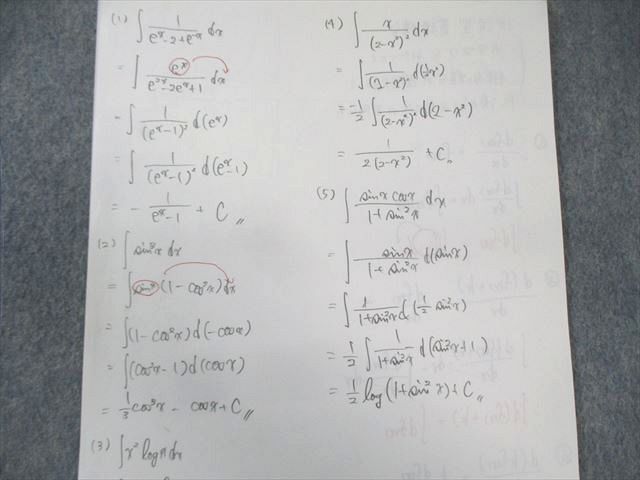 (1) ∫ 1/(eˣ-2+e⁻ˣ) dx
= ∫ eˣ/(e²ˣ-2eˣ+1) dx
= ∫ 1/(eˣ-1)² d(eˣ)
= ∫ 1/(eˣ-1)² d(eˣ-1)
= - 1/(eˣ-1) + C
(2) ∫ sin³x dx
= ∫ sinx (1-cos²x) dx
= ∫(1-cos²x) d(-cosx)
= ∫(cos²x-1) d(cosx)
= 1/3 cos³x - cosx + C
(3) ∫ x² logx dx
(4) ∫ x/(2-x²)² dx
= ∫ 1/(2-x²)² d(½x²)
= -1/2 ∫ 1/(2-x²)² d(2-x²)
= 1/(2(2-x²)) + C
(5) ∫ sinx cosx/(1+sin²x) dx
= ∫ sinx/(1+sin²x) d(sinx)
= ∫ 1/(1+sin²x) d(½ sin²x)
= 1/2 ∫ 1/(1+sin²x) d(sin²x+1)
= 1/2 log(1+sin²x) + C